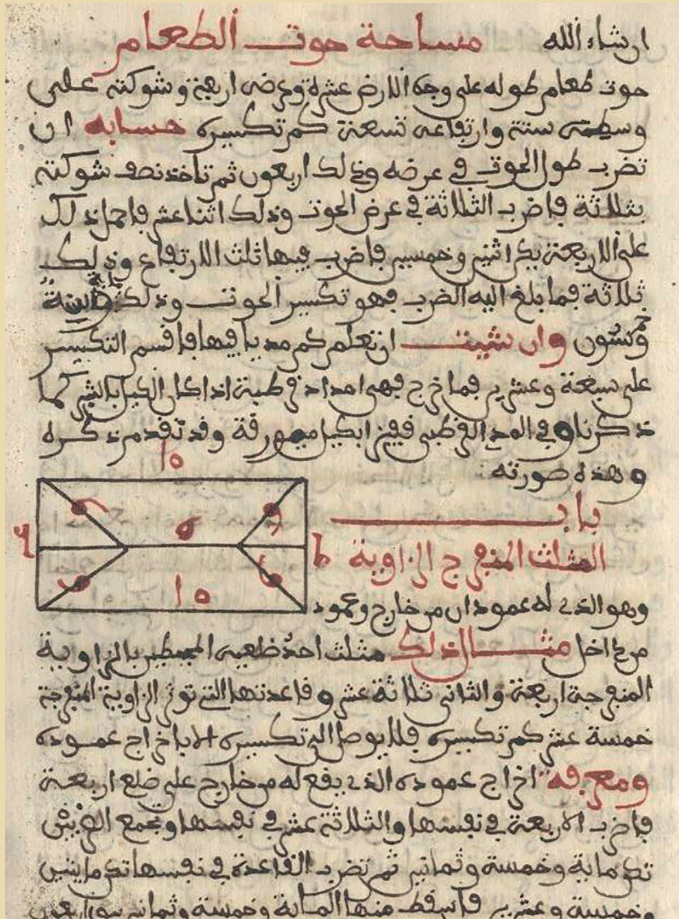 ان شاء الله مساحة حوت الطعام
حوت طعام طوله على وجه الارض عشرة وعرضه اربعة وشوكته على
وسطه ستة وارتفاعه تسعة كم تكسيره حسابه ان
تضرب طول الحوت في عرضه وذلك اربعون ثم تاخذ نصف شوكته
بثلاثة فاضرب الثلاثة في عرض الحوت وذلك اثنا عشر فاحمل ذلك
على الاربعين يكن اثنين وخمسين فاضرب فيها ثلث الارتفاع وذلك
ثلاثة فما بلغ اليه الضرب فهو تكسير الحوت وذلك مائة
وخمسون وان شيت ان تعلم كم مديا فيها فاقسم التكسير
على سبعة وعشرين فما خرج فهي امداد قرطبية اذا كان الكيل بالشبر كما
ذكرنا وفي المدي القرطبي وقد تقدم ذكره
وهذه صورته
١٥
٤
٥
٦
١٥
باب
المثلث المنفرج الزاوية
وهو الذي له عمودان من خارج وعمود
من داخل مثال ذلك مثلث احد ضلعيه المحيطين بالزاوية
المنفرجة اربعة والثاني ثلاثة عشر وقاعدتها التي توتر الزاوية المنفرجة
خمسة عشر كم تكسيره فلا يوصل الى تكسيره الا باخراج عموده
ومعرفة اخراج عموده الذي يقع له من خارج على ضلع اربعة
فاضرب الاربعة في نفسها والثلاثة عشر في نفسها وتجمع
تكن ماية وخمسة وثمانين ثم تضرب القاعدة في نفسها تكن مايتين
وخمسة وعشرين فاسقط منها الماية وخمسة وثمانين يبق اربعون